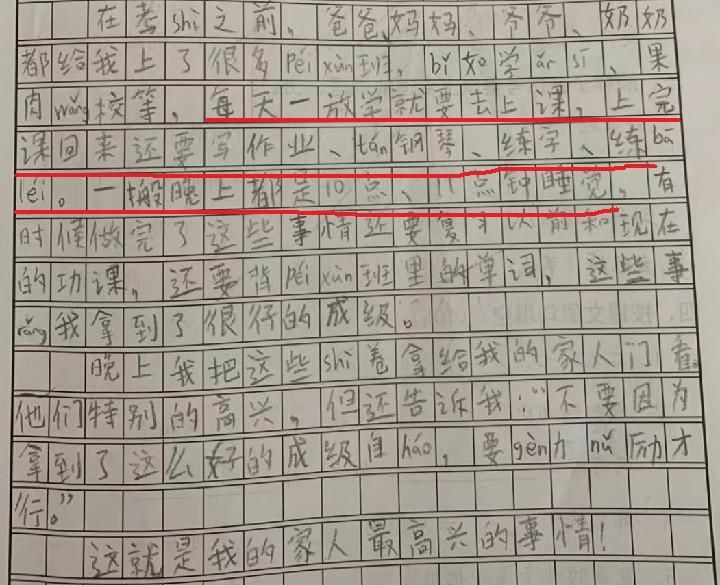 在考shì之前，爸爸、妈妈、爷爷、奶奶
都给我上了很多péi xùn班，bǐ如学ǎr sī、果
肉wǎng校等，每天一放学就要去上课，上完
课回来还要写作业、tán钢琴、练字、练bā
léi。一般晚上都是10点、11点钟睡觉，有
时候做完了这些事情还要复习以前和现在
的功课，还要背péi xùn班里的单词，这些事
ràng我拿到了很好的成级。
晚上我把这些shì卷拿给我的家人门看。
他们特别的高兴，但还告诉我：“不要因为
拿到了这么好的成级自háo，要gèn力nǔ励才
行。”
这就是我的家人最高兴的事情！